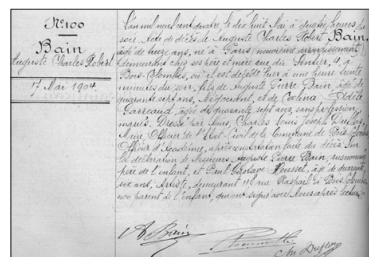 N° 100
Bain
Auguste Charles Robert
17 Mai 1904
L'an mil neuf cent quatre, le dix huit Mai à heures du
soir. Acte de décès de Auguste Charles Robert Bain,
âgé de treize ans, né à Paris arrondissement
demeurant chez ses père et mère rue du Sentier, 4, à
Bois-Colombes, où il est décédé hier à une heure trente
minutes du soir, fils de Auguste Pierre Bain, âgé de
quarante sept ans, Négociant, et de
Garreaud, âgée de quarante sept ans, sans profession,
mariés. Dressé par nous, Charles Louis Joseph
Maire, Officier de l'Etat Civil de la Commune de Bois-Colombes
Officier d'Académie, après constatation faite du décès. Sur
la déclaration de Messieurs Auguste Pierre Bain, susnommé
père de l'enfant, et Paul Gustave Roussel, âgé de quarante
six ans, Artiste, demeurant rue Raphaël à Bois-Colombes
non parent de l'enfant, qui ont signé avec Nous après lecture.
A Bain